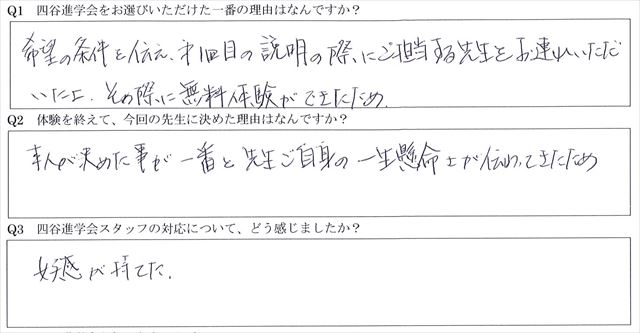 Q1 四谷進学会をお選びいただけた一番の理由はなんですか?
希望の条件を伝え、才1回目の説明の際、にご担当する先生をお連れいただ
いた上、その際に無料体験ができたため。
Q2 体験を終えて、今回の先生に決めた理由はなんですか?
本人が決めた事が一番と先生ご自身の一生懸命さが伝わってきたため
Q3 四谷進学会スタッフの対応について、どう感じましたか?
好感が持てた。